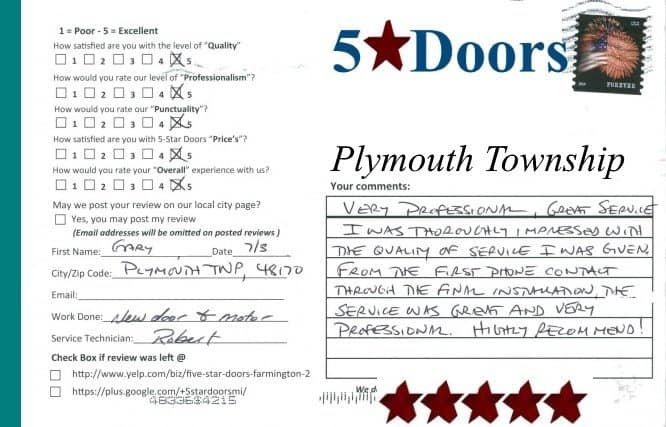 1 = Poor - 5 = Excellent
How satisfied are you with the level of "Quality"
1 2 3 4 5
How would you rate our level of "Professionalism"?
1 2 3 4 5
How would you rate our "Punctuality"?
1 2 3 4 5
How satisfied are you with 5-Star Doors "Price's"?
1 2 3 4 5
How would you rate your "Overall" experience with us?
1 2 3 4 5
May we post your review on our local city page?
Yes, you may post my review
(Email addresses will be omitted on posted reviews )
First Name: GARY Date 7/3
City/Zip Code: PLYMOUTH TWP, 48170
Email:
Work Done: New door & motor
Service Technician: Robert
Check Box if review was left @
http://www.yelp.com/biz/five-star-doors-farmington-2
https://plus.google.com/+5stardoorsmi/
4833684215
5★Doors
USA
FOREVER
Plymouth Township
Your comments:
VERY PROFESSIONAL, GREAT SERVICE
I WAS THOROUGHLY IMPRESSED WITH
THE QUALITY OF SERVICE I WAS GIVEN.
FROM THE FIRST PHONE CONTACT
THROUGH THE FINAL INSTALLATION, THE
SERVICE WAS GREAT AND VERY
PROFESSIONAL. HIGHLY RECOMMEND!
We d